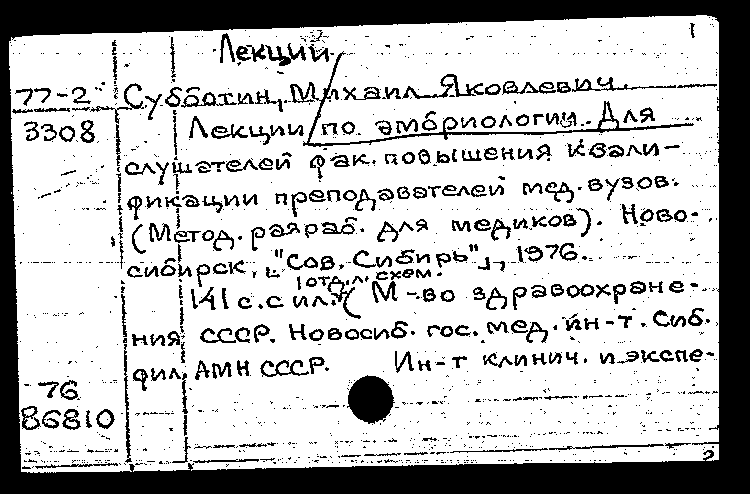 1
Лекции
77-2 Субботин, Михаил Яковлевич.
3308 Лекции по эмбриологии. Для
слушателей фак. повышения квали-
фикации преподавателей мед. вузов.
(Метод. разраб. для медиков). Ново-
сибирск, "Сов. Сибирь", 1976.
1 отд. л. схем.
141 с. с ил. (М-во здравоохране-
ния СССР. Новосиб. гос. мед. ин-т. Сиб.
фил. АМН СССР. Ин-т клинич. и экспе-
76
86810
2